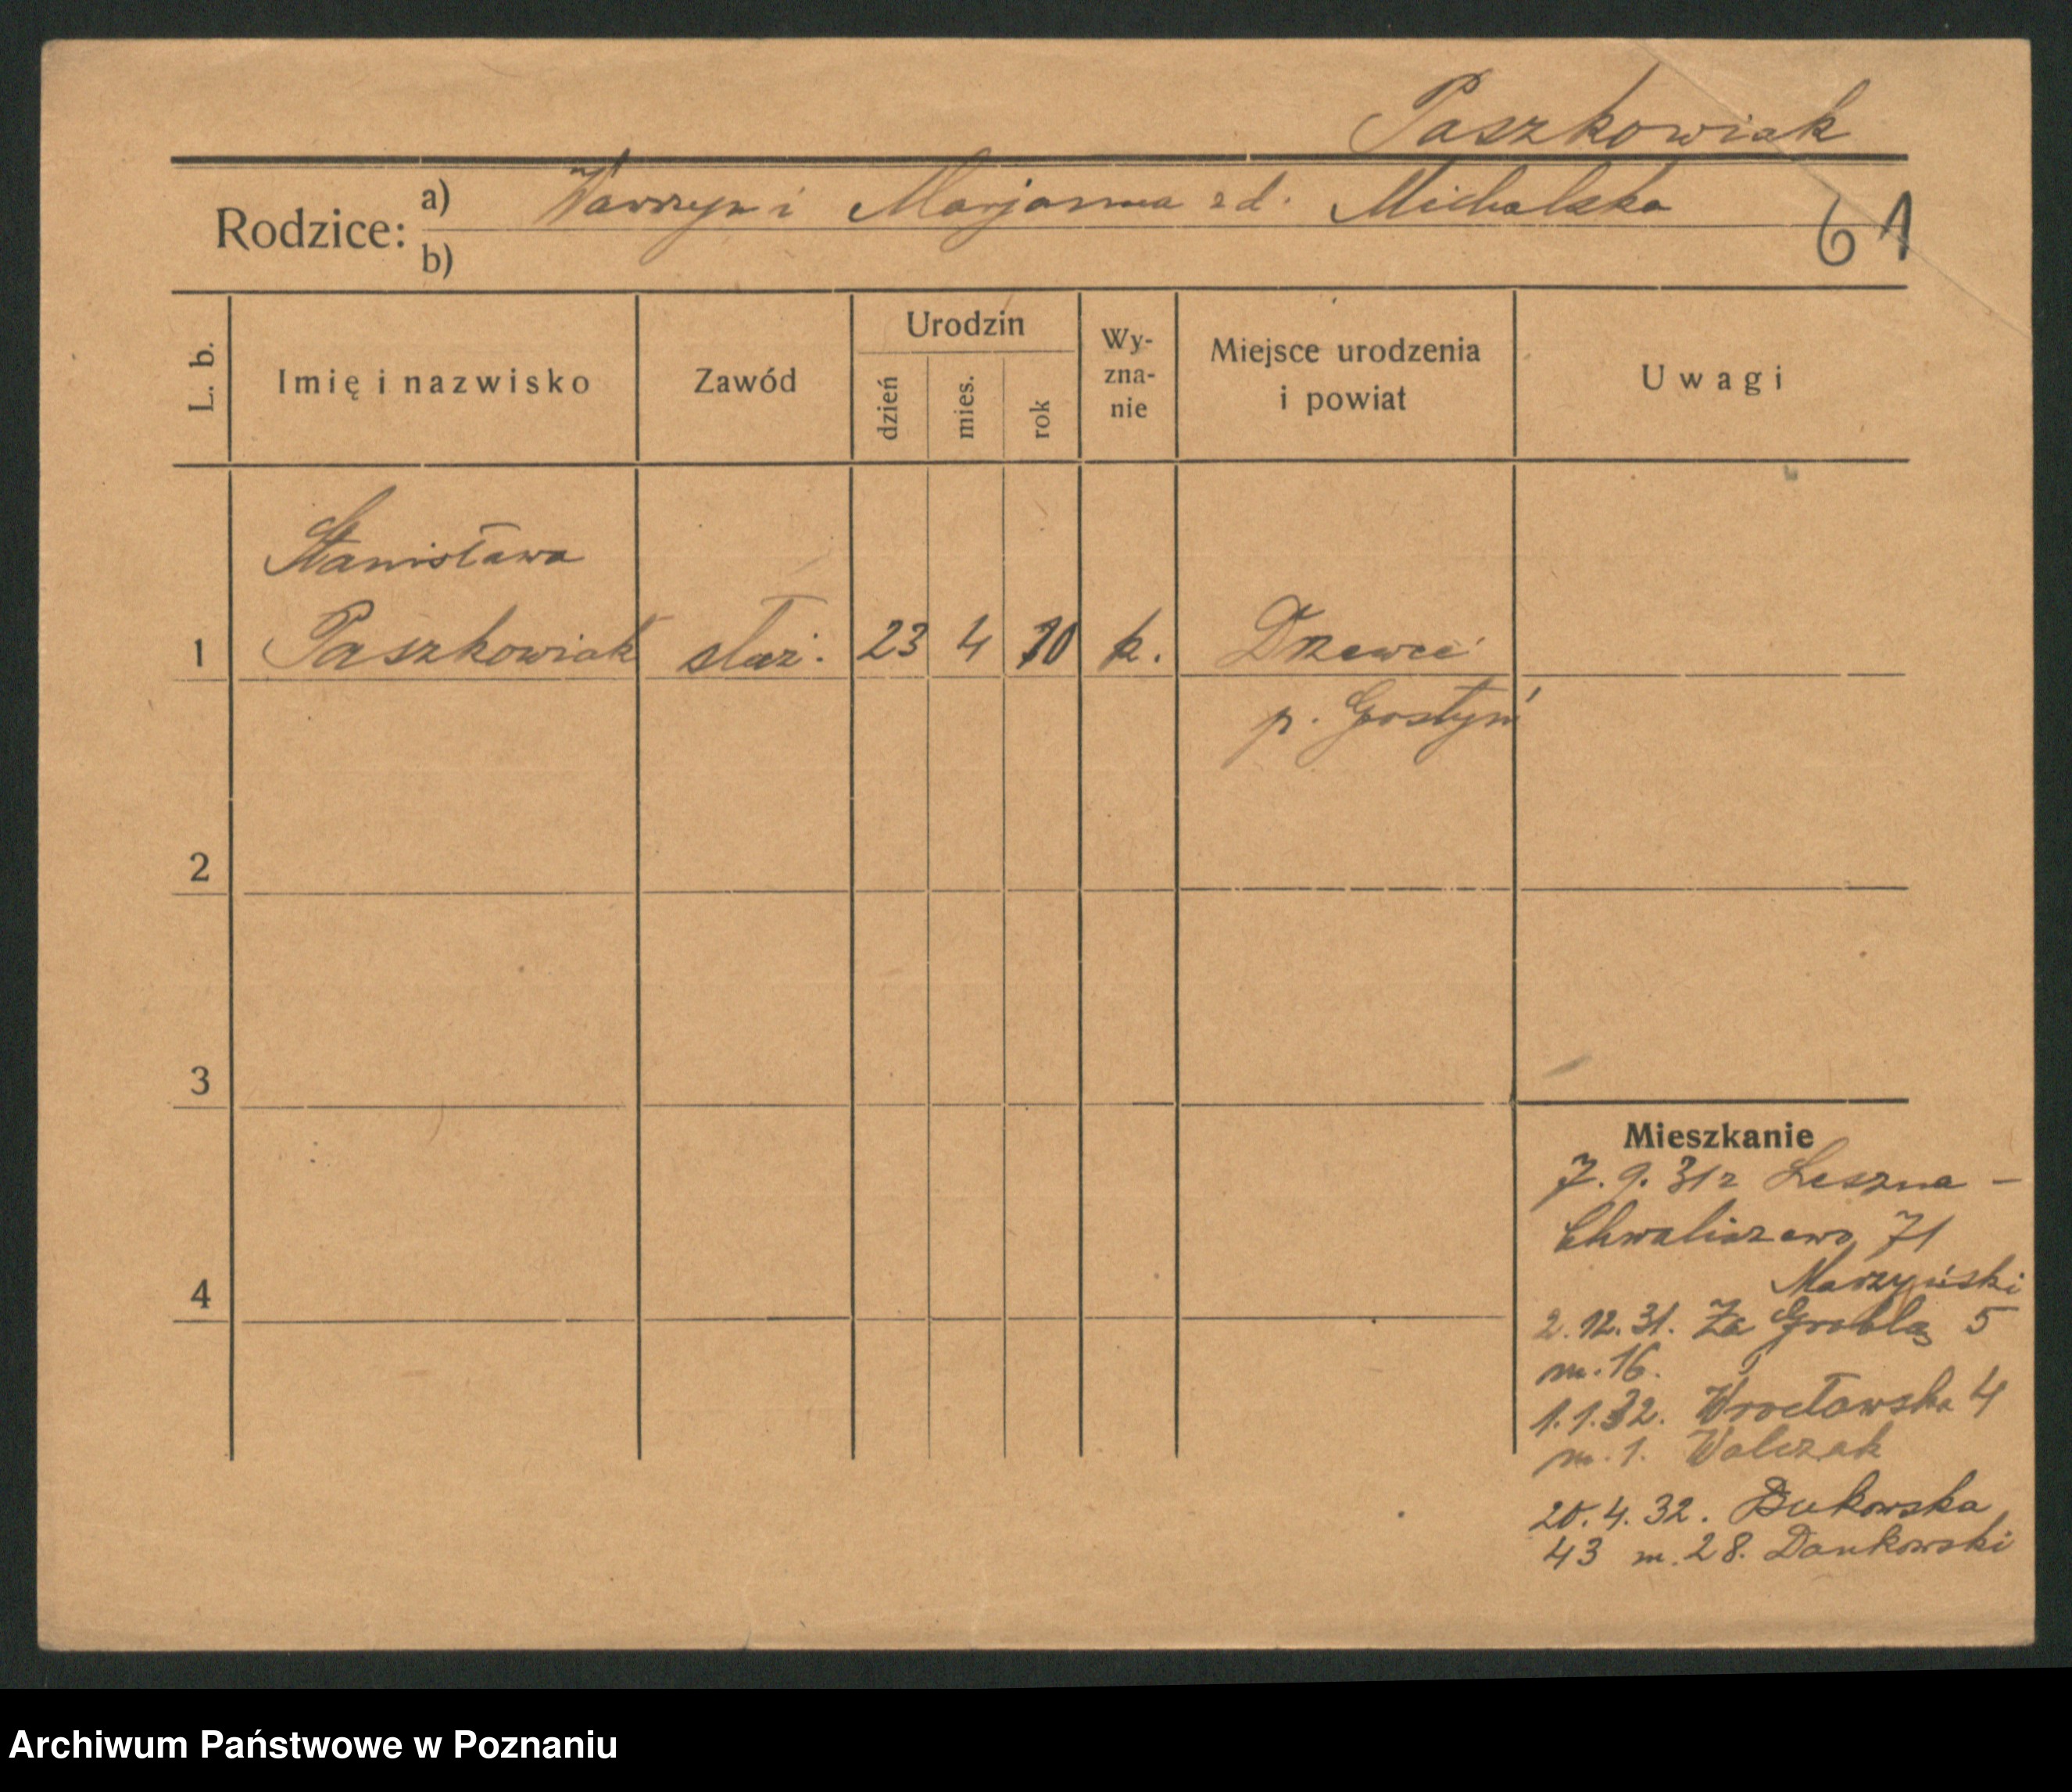 Paszkowiak
Rodzice:
a) Wawrzyn i Marjanna zd. Michalska
b)
61
L. b.
Imię i nazwisko
Zawód
Urodzin
dzień
mies.
rok
Wy-
zna-
nie
Miejsce urodzenia
i powiat
Uwagi
Stanisława
1 Paszkowiak służ. 23 4 10 k. Drzewce
p. Gostyń
2
3
4
Mieszkanie
7. 9. 31 r Leszna -
Chwaliszewo 71
Marzyński
2. 12. 31. Za Groblą 5
m. 16.
1. 1. 32. Wrocławska 4
m. 1. Walczak
20. 4. 32. Bukowska
43 m. 28. Dankowski
Archiwum Państwowe w Poznaniu